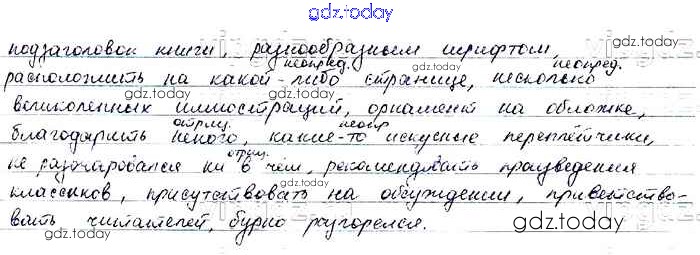 gdz.today
подзаголовок книги, разнообразным шрифтом,
неопред. неопред.
расположить на какой-либо странице, несколько
великолепных иллюстраций, орнамент на обложке,
отриц. неопр
благодарить некого, какие-то искусные переплётчики,
отриц.
не разочаровался ни в чём, рекомендовать произведения
классиков, присутствовать на обсуждении, приветство-
вать читателей, бурно разгорелся.
gdz.today
gdz.today
gdz.today
gdz.today
gdz.today
gdz.today
gdz.today
gdz.today
gdz.today